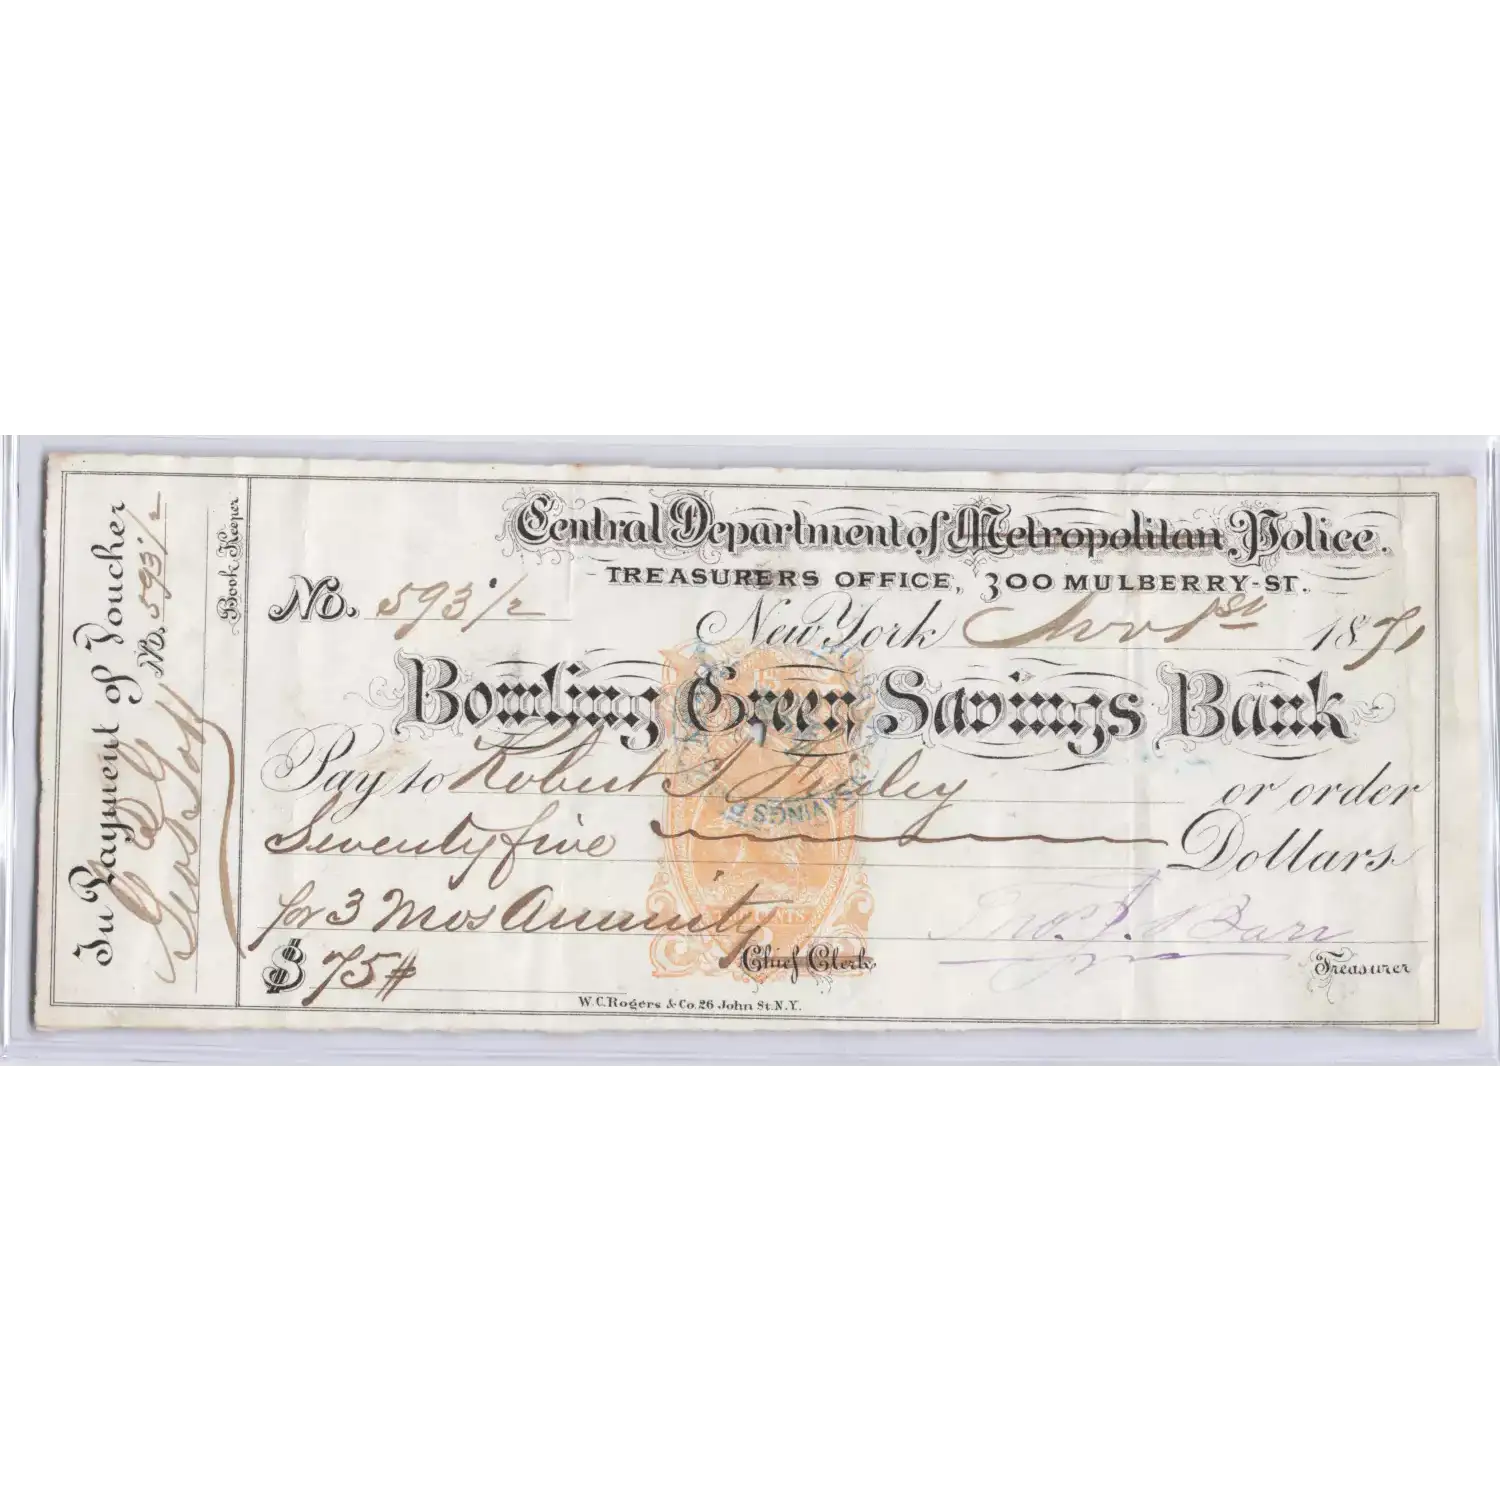 In Payment of Voucher
No. 593 1/2
Book Keeper
Central Department of Metropolitan Police.
TREASURERS OFFICE, 300 MULBERRY-ST.
No. 593 1/2
New York Nov 1st 1871
Bowling Green Savings Bank
Pay to Robert J Finley or order
Seventy five Dollars
for 3 Mos Annuity
Thos. J. Barr
$ 75 #
Chief Clerk
Treasurer
W.C. Rogers & Co. 26 John St. N.Y.
SAVINGS B
CENTS